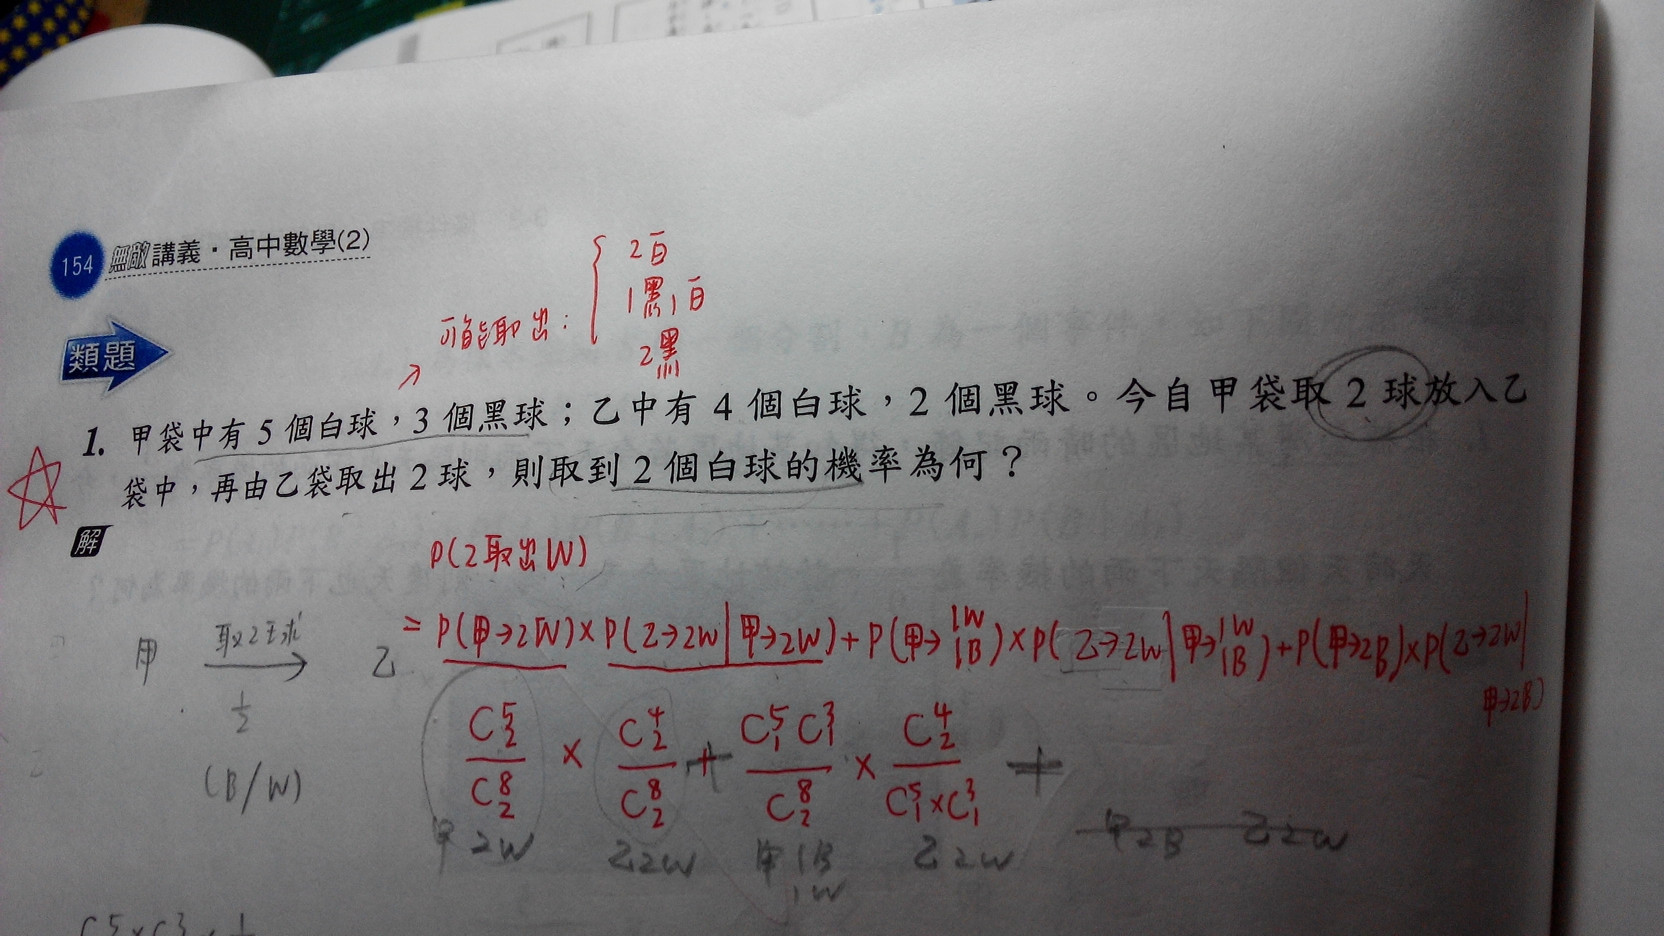 154 無敵講義·高中數學(2)
類題
可能取出:
2白
1黑1白
2黑
1. 甲袋中有 5 個白球，3 個黑球；乙中有 4 個白球，2 個黑球。今自甲袋取 2 球放入乙
袋中，再由乙袋取出 2 球，則取到 2 個白球的機率為何？
解
P(2取出W)
甲 取2球→ 乙
1/2
(B/W)
= P(甲→2W)×P(乙→2W|甲→2W)+P(甲→1W 1B)×P(乙→2W|甲→1W 1B)+P(甲→2B)×P(乙→2W|
甲→2B)
C⁵₂/C⁸₂ × C⁴₂/C⁸₂ + C⁵₁C³₁/C⁸₂ × C⁴₂/C⁵₁×C³₁ +
甲2W 乙2W 甲1B 1W 乙2W 甲2B 乙2W